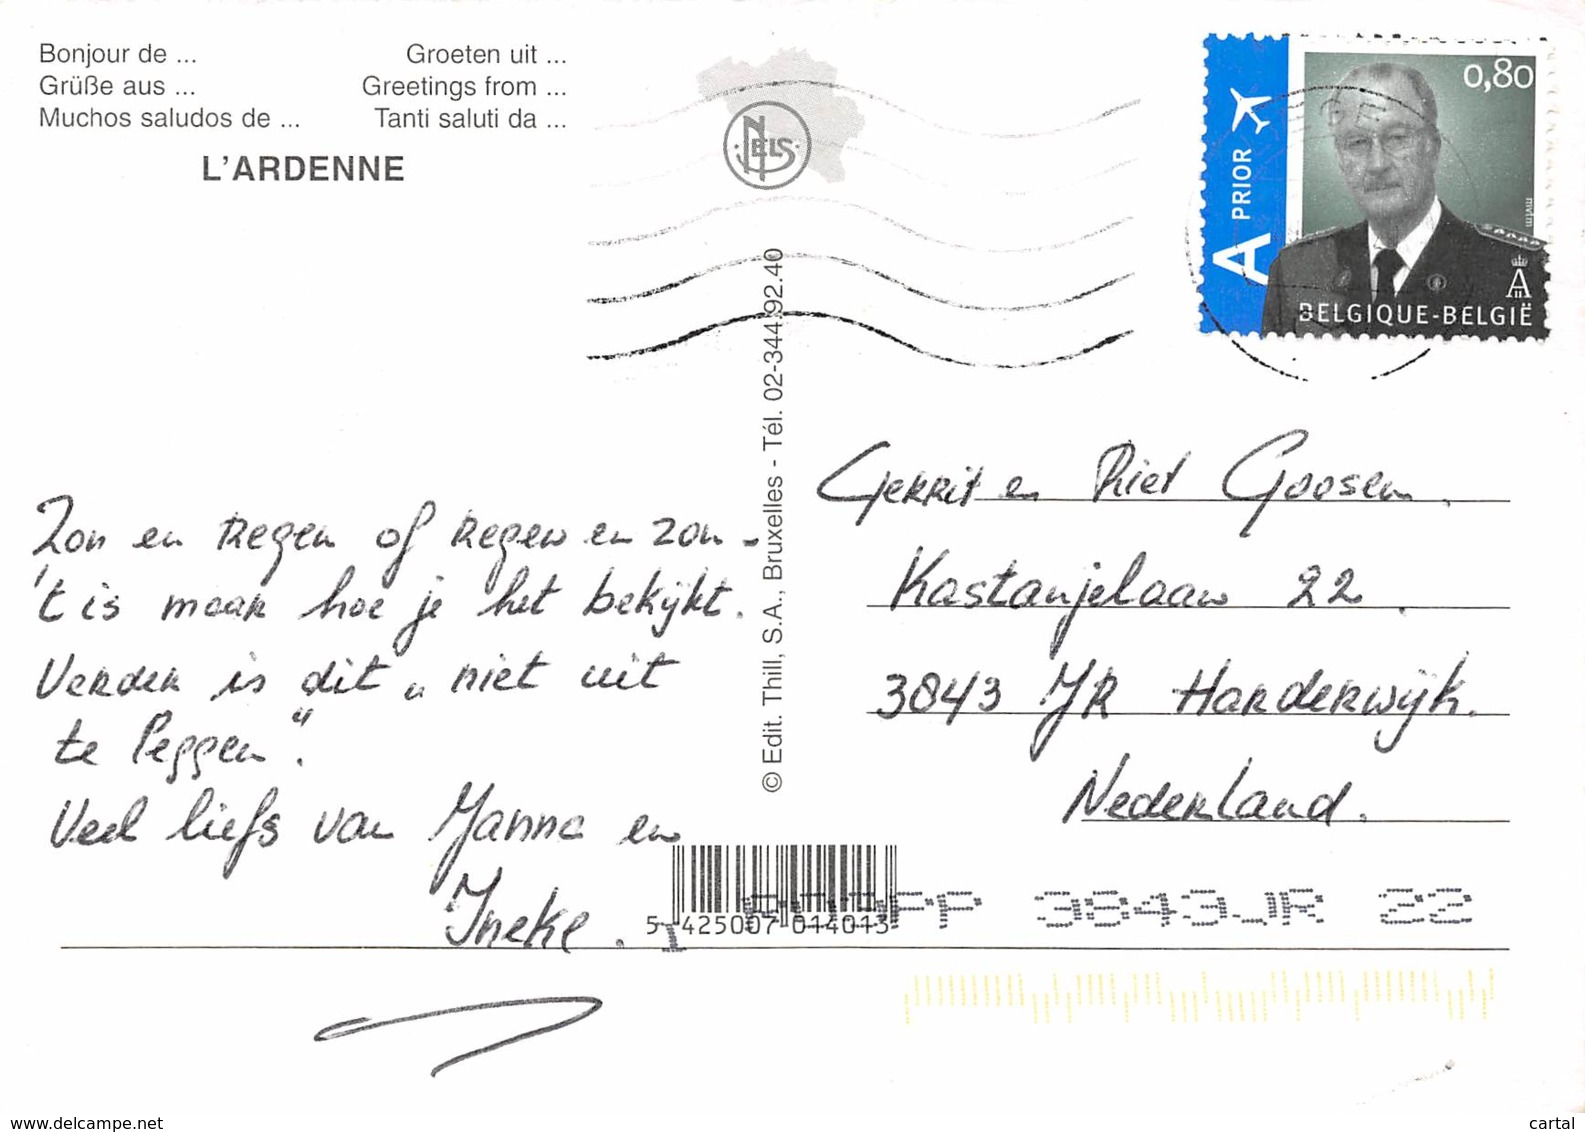 Bonjour de ... Groeten uit ...
Grüße aus ... Greetings from ...
Muchos saludos de ... Tanti saluti da ...
L'ARDENNE
NELS
A PRIOR
0,80
mvtm
BELGIQUE-BELGIË
© Edit. Thill, S.A., Bruxelles - Tél. 02-344.92.40
Zon en regen of regen en zon -
't is maar hoe je het bekijkt.
Verder is dit „niet uit
te leggen".
Veel liefs van Janna en
Ineke.
Gerrit en Riet Goosen.
Kastanjelaan 22.
3843 JR Harderwijk.
Nederland.
5 425007 014013
3843JR 22
www.delcampe.net
cartal